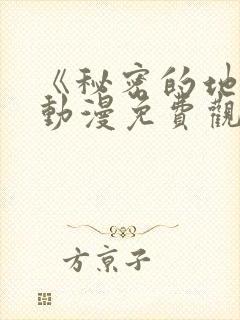 《秘密的地
動漫免費觀
方京子